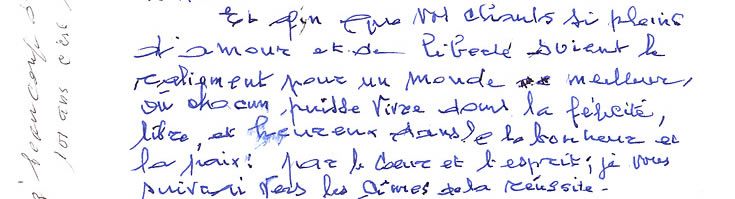 Et afin que vos chants si pleins
d'amour et de liberté soient le
ralliement pour un monde meilleur,
où chacun puisse vivre dans la félicité,
libre, et heureux dans le bonheur et
la paix! par le cœur et l'esprit; je vous
suivrai vers les cîmes de la réussite -
à beaucoup
101 ans